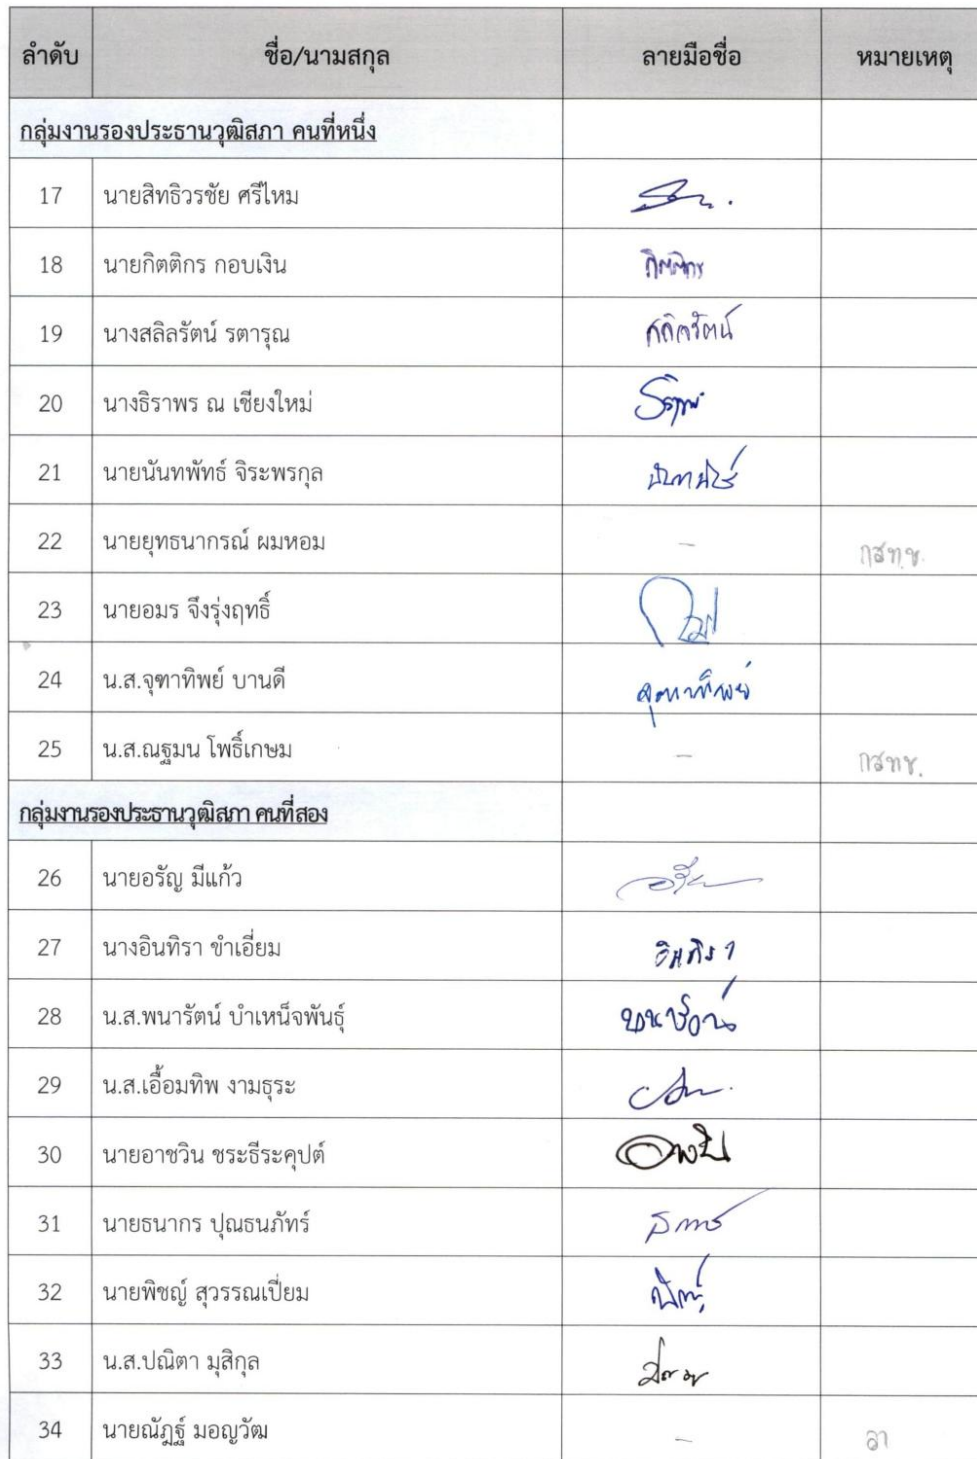 ลำดับ ชื่อ/นามสกุล ลายมือชื่อ หมายเหตุ
กลุ่มงานรองประธานวุฒิสภา คนที่หนึ่ง
17 นายสิทธิวรชัย ศรีไหม
18 นายกิตติกร กอบเงิน กิตติกร
19 นางสลิลรัตน์ รตารุณ สลิลรัตน์
20 นางธิราพร ณ เชียงใหม่
21 นายนันทพัทธ์ จิระพรกุล
22 นายยุทธนากรณ์ ผมหอม - กสทช.
23 นายอมร จึงรุ่งฤทธิ์
24 น.ส.จุฑาทิพย์ บานดี จุฑาทิพย์
25 น.ส.ณฐมน โพธิ์เกษม - กสทช.
กลุ่มงานรองประธานวุฒิสภา คนที่สอง
26 นายอรัญ มีแก้ว
27 นางอินทิรา ขำเอี่ยม อินทิรา
28 น.ส.พนารัตน์ บำเหน็จพันธุ์
29 น.ส.เอื้อมทิพ งามธุระ
30 นายอาชวิน ชระธีระคุปต์
31 นายธนากร ปุณธนภัทร์
32 นายพิชญ์ สุวรรณเปี่ยม
33 น.ส.ปณิตา มุสิกุล
34 นายณัฏฐ์ มอญวัฒ - ลา